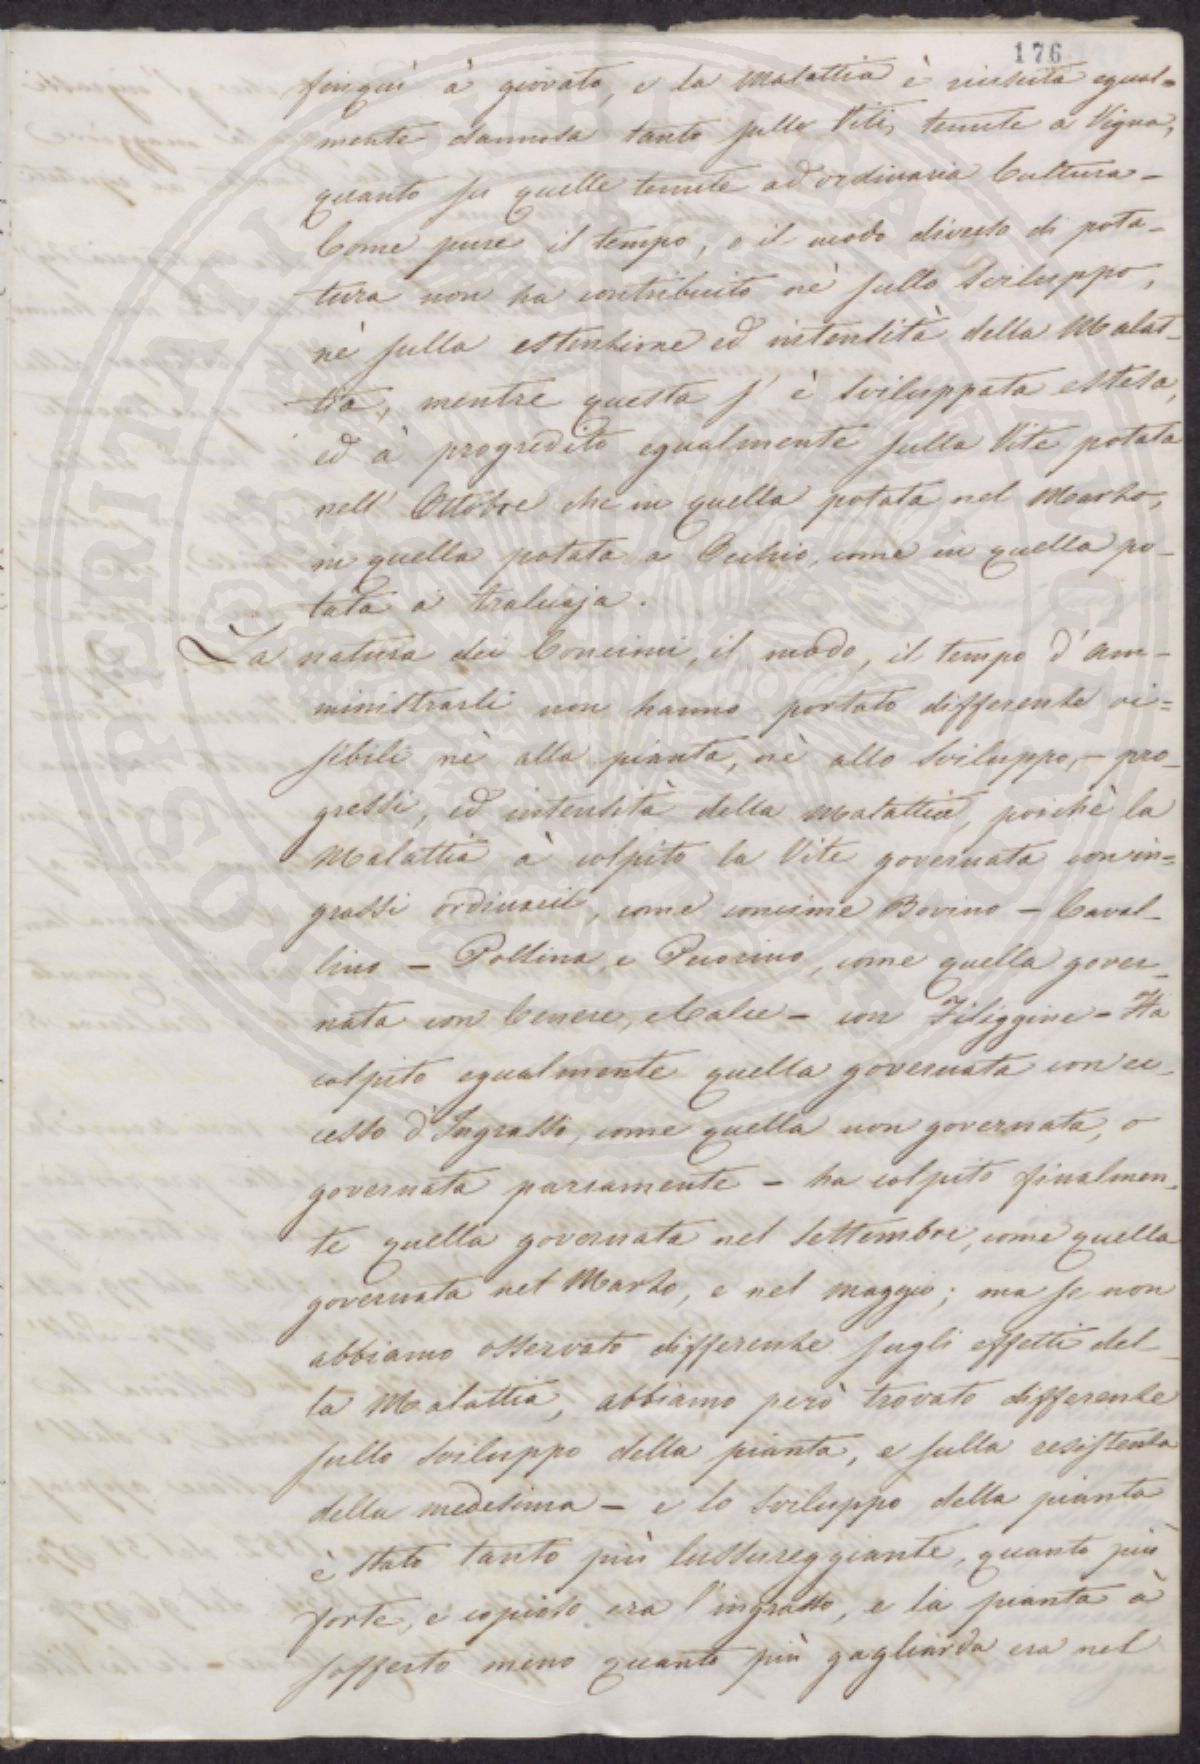 176
finquì à giovato, e la Malattia è riuscita egual=
mente dannosa tanto sulle Viti, tenute a Vigna,
quanto su quelle tenute ad ordinaria Cultura -
Come pure il tempo, e il modo diverso di pota-
tura non ha contribuito nè sullo Sviluppo,
nè sulla estensione ed intensità della Malat-
tia, mentre questa s' è sviluppata estesa,
ed à progredito egualmente sulla Vite potata
nell' Ottobre che in quella potata nel Marzo,
in quella potata a Occhio, come in quella po-
tata a tralciaja.
La natura dei Concimi, il modo, il tempo d' am-
ministrarli non hanno portato differenze vi=
sibili nè alla pianta, nè allo Sviluppo, - pro-
gressi, ed intensità della Malattia, poichè la
Malattia à colpito la Vite governata con in=
grassi ordinarii, come concime Bovino - Caval-
lino - Pollina, e Pecorino, come quella gover-
nata con Cenere, e Calce - con Filiggine - Ha
colpito egualmente quella governata con ec-
cesso d' Ingrasso, come quella non governata, o
governata parcamente - ha colpito finalmen-
te quella governata nel Settembre, come quella
governata nel Marzo, e nel Maggio; ma se non
abbiamo osservato differenze sugli effetti del-
la Malattia, abbiamo però trovato differenze
sullo Sviluppo della pianta, e sulla resistenza
della medesima - e lo Sviluppo della pianta
è stato tanto più lussureggiante, quanto più
forte, e copioso era l'ingrasso, e la pianta à
sofferto meno quanto più gagliarda era nel
PROSPERITATI PUBLICAE AUGENDAE